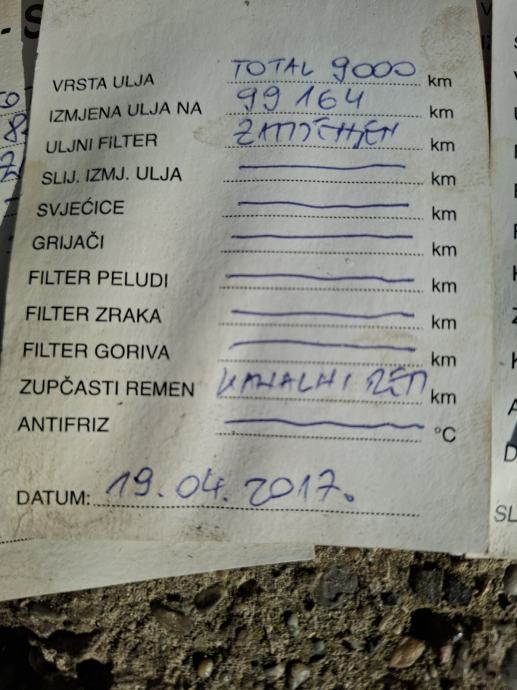 VRSTA ULJA TOTAL 9000 km
IZMJENA ULJA NA 99 164 km
ULJNI FILTER km
SLIJ. IZMJ. ULJA km
SVJEĆICE km
GRIJAČI km
FILTER PELUDI km
FILTER ZRAKA km
FILTER GORIVA km
ZUPČASTI REMEN KANALNI km
ANTIFRIZ °C
DATUM: 19.04.2017.